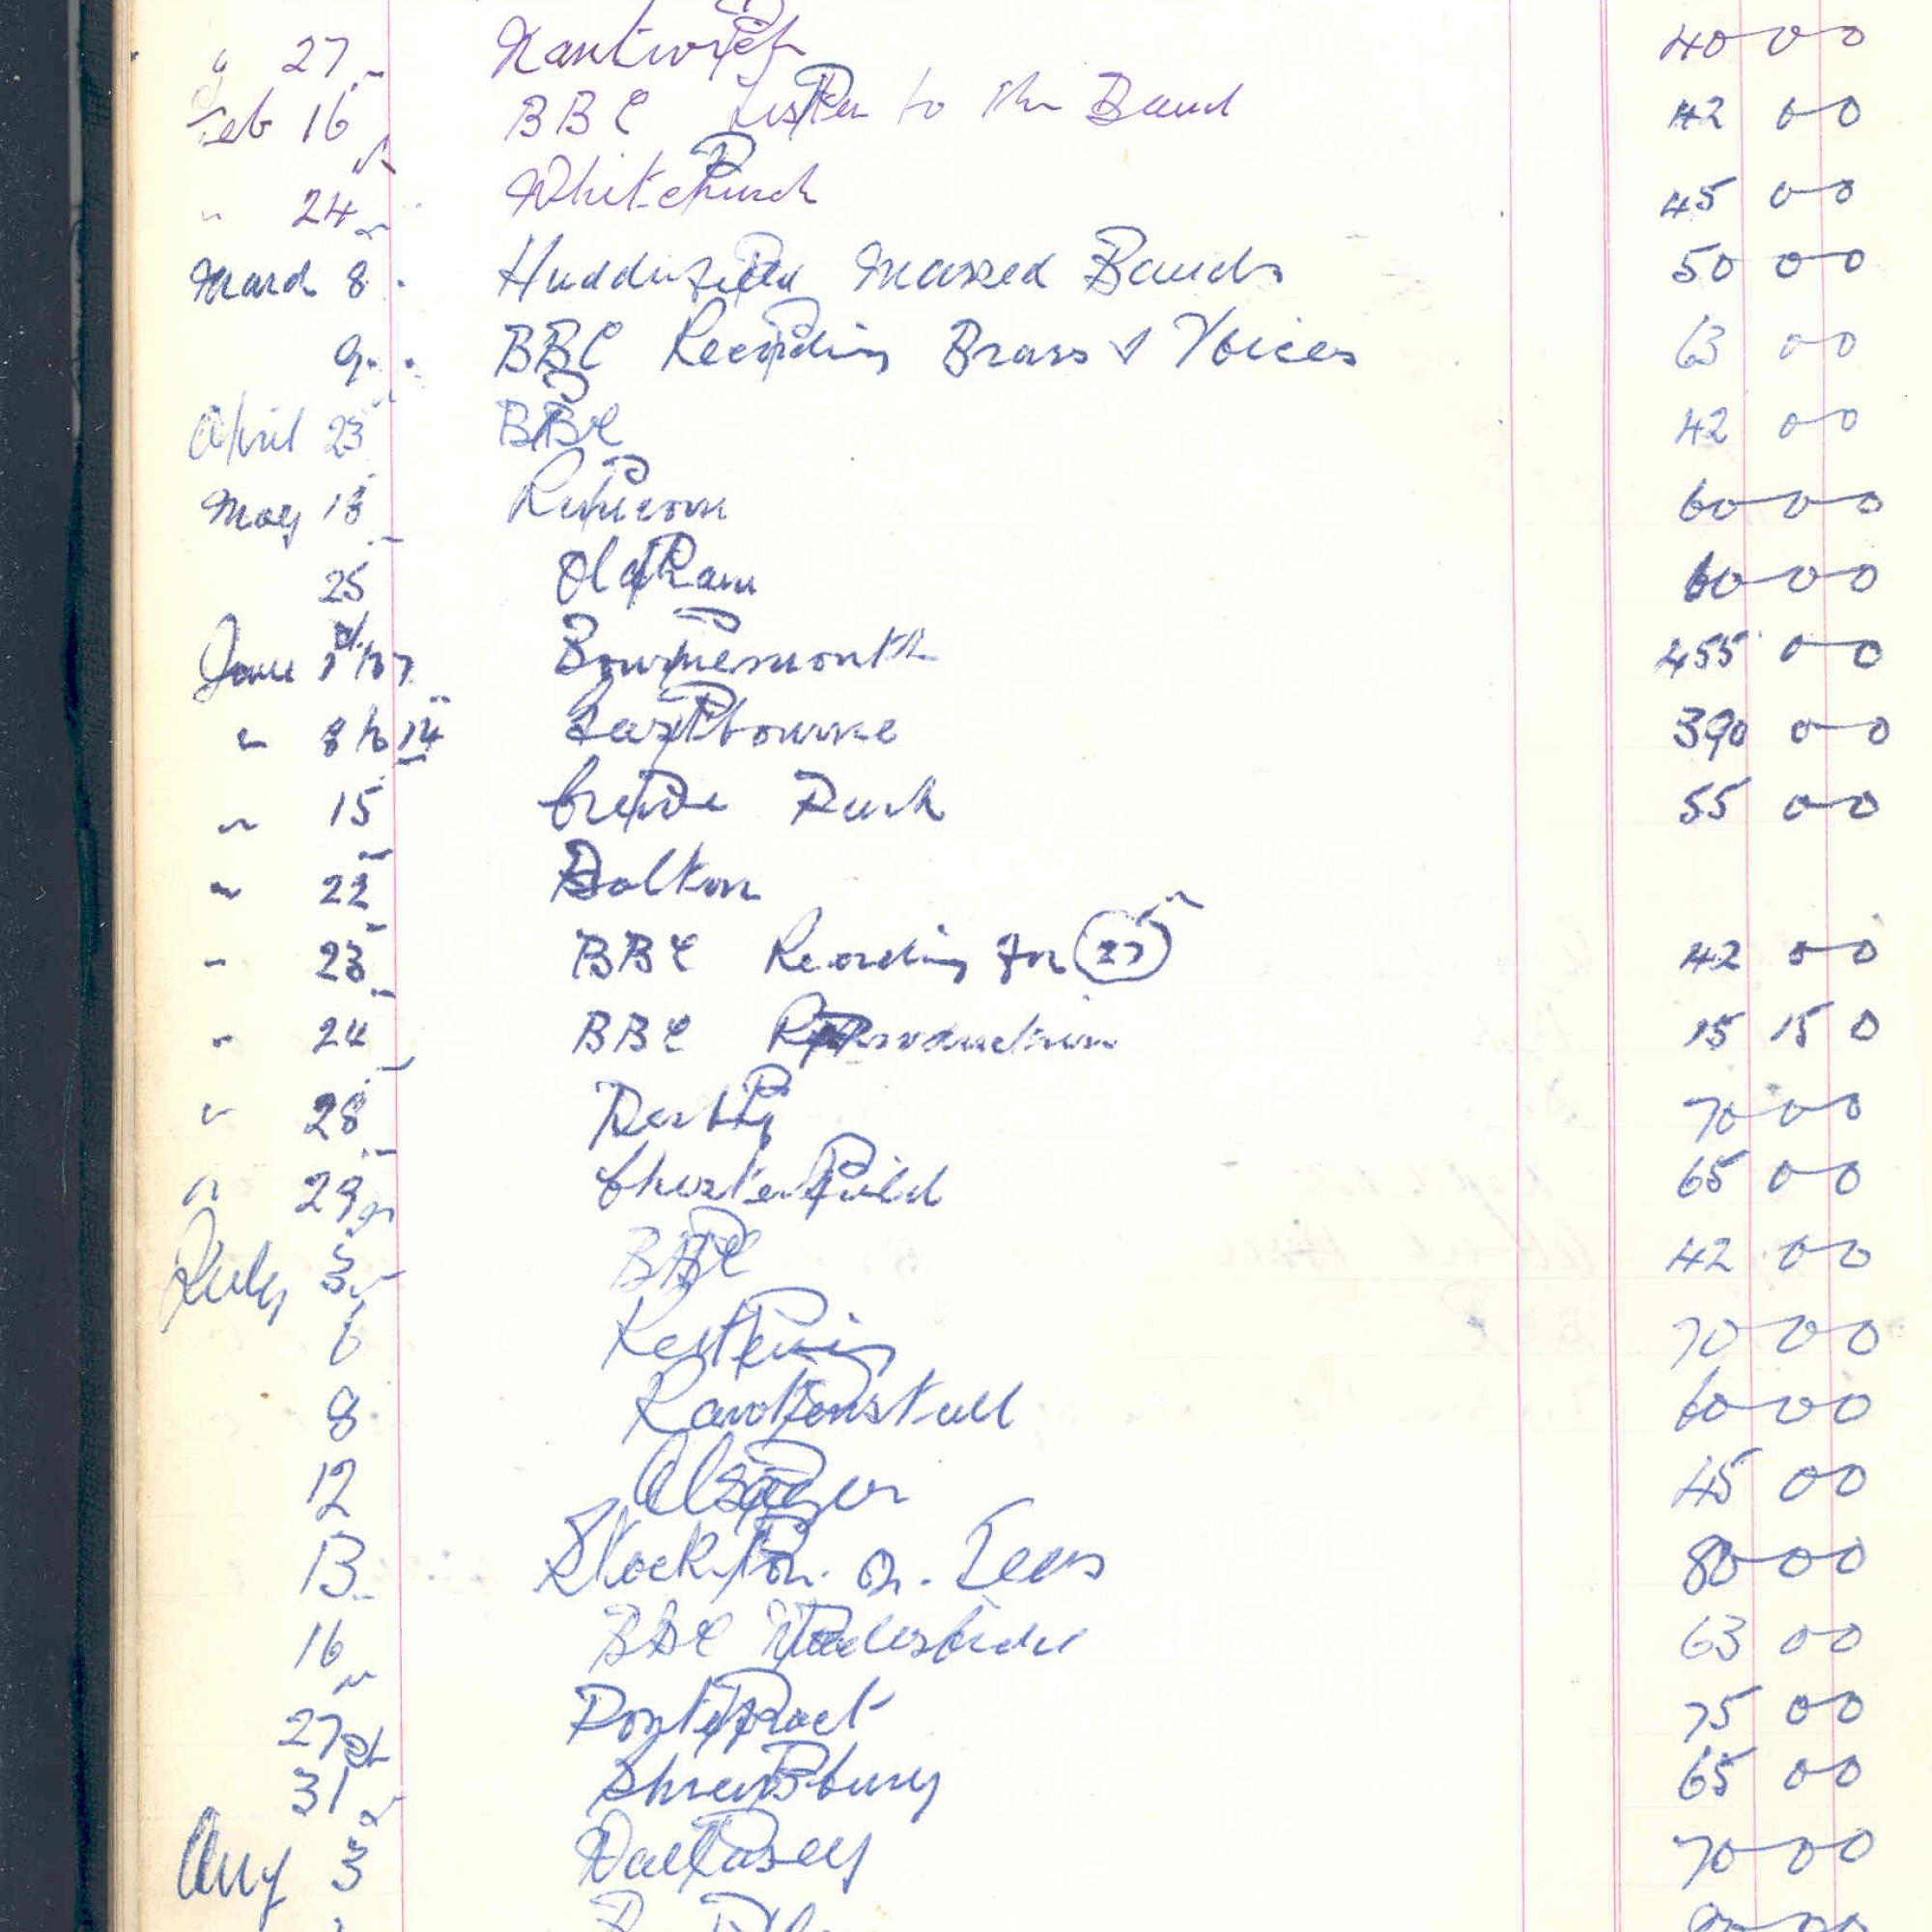 " 27 Nantwich 40 0 0
Feb 16 BBC Listen to the Band 42 0 0
" 24 Whitchurch 45 0 0
March 8 Huddersfield Massed Bands 50 0 0
9 BBC Recording Brass & Voices 63 0 0
April 23 BBC 42 0 0
May 18 Runcorn 60 0 0
25 Oldham 60 0 0
June 1 to 7 Bournemouth 455 0 0
" 8 to 14 Eastbourne 390 0 0
" 15 Crewe Park 55 0 0
" 22 Bolton
" 23 BBC Recording for 27 42 0 0
" 24 BBC Reproduction 15 15 0
" 28 Derby 70 0 0
" 29 Chesterfield 65 0 0
July 3 BBC 42 0 0
6 Kettering 70 0 0
8 Rawtenstall 60 0 0
12 Alsager 45 0 0
13 Stockton. on. Tees 80 0 0
16 BBC 63 0 0
27 Pontefract 75 0 0
31 Shrewsbury 65 0 0
Aug 3 Wallasey 70 0 0